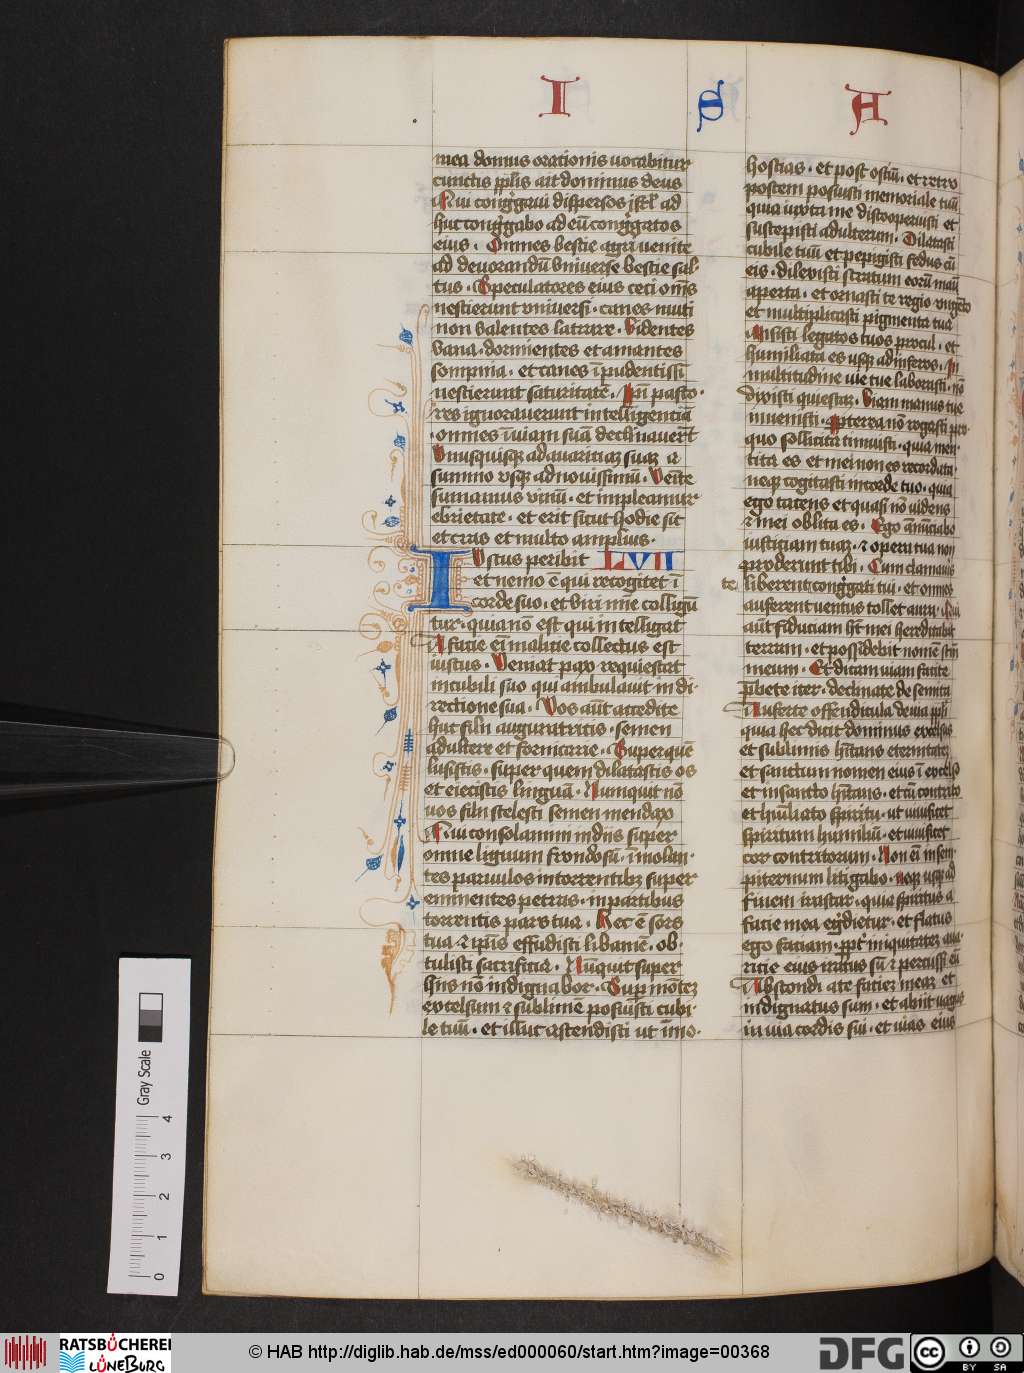 I S A
mea domus orationis uocabitur
cunctis pplis ait dominus deus
Qui congregaui dispersos isrl ad
huc congregabo ad eū congregatos
eius . Omnes bestie agri uenite
ad deuorandū vniuerse bestie sal-
tus . Speculatores eius ceci oms
nescierunt vniuersi . canes muti
non valentes latrare . Videntes
vana . dormientes et amantes
sompnia . et canes īpudentissi
nescierunt saturitatē . Ipi pasto-
res ignorauerunt intelligentiā
. omnes ī uiam suā declinauert
Vnusquisqz ad auariciaz suaz a
summo vsqz ad nouissimū . Veīte
sumamus vinū . et impleamur
ebrietate . et erit sicut hodie sic
et cras et multo amplius .
Iustus peribit LVII
et nemo ē qui recogitet ī
corde suo . et viri mīe colligū
tur . quia nō est qui intelligat
A facie eī malicie collectus est
iustus . Veniat pax requiescat
in cubili suo qui ambulauit in di-
rectione sua . Vos aūt accedite
huc filii auguratricis . semen
adultere et fornicarie . Super quē
lusistis . super quem dilatastis os
et eiecistis linguā . Nunquit nō
uos filii scelesti semen mendax
Qui consolamini in diis super
omne lignum frondosū . īmolan-
tes paruulos in torrentibz super
eminentes petras . in partibus
torrentis pars tua . Hec ē sors
tua et ipis effudisti libamē . ob-
tulisti sacrificia . Nūquit super
hiis nō indignabor . Sup mōtez
excelsum et sublimē posuisti cubi-
le tuū . et illuc ascendisti ut īmo-
hostias . et post ostiū . et retro
postem posuisti memoriale tuū
quia iuxta me discooperuisti et
suscepisti adulterum . Dilatasti
cubile tuū et pepigisti fedus cū
eis . dilexisti stratum eorū manu
aperta . et ornasti te regio vngēto
et multiplicasti pigmenta tua
Misisti legatos tuos procul . et
humiliata es usqz ad inferos . In
multitudine uie tue laborasti . nō
dixisti quiescaz . Viam manus tue
inuenisti . propterea nō rogasti pro
quo sollicita timuisti . quia men-
tita es et mei non es recordata .
neqz cogitasti in corde tuo . quia
ego tacens et quasi nō uidens
et mei oblita es . Ego ānūciabo
iusticiam tuaz . et opera tua non
proderunt tibi . Cum clamauis
te liberent congregati tui . et omnes
auferent uentus tollet aura . Qui
aūt fiduciam ht mei hereditabit
terram . et possidebit montē sctm
meum . Et dicam uiam facite
prebete iter . declinate de semita
Auferte offendicula de uia ppli
quia hec dicit dominus excelsus
et sublimis hitans eternitatez
et sanctum nomen eius ī excelso
et in sancto hitans . et cū contrito
et huīliato spiritu . ut uiuificet
spiritum humiliū . et uiuificet
cor contritorum . Non eī in sem-
piternum litigabo . neqz usqz ad
finem irascar . quia spiritus a
facie mea egredietur . et flatus
ego faciam . ppt iniquitatez aua-
ricie eius iratus sū et percussi eū
Abscondi a te faciez meaz et
indignatus sum . et abiit uagus
in uia cordis sui . et uias eius
Gray Scale
0 1 2 3 4
RATSBÜCHEREI
LÜNEBURG
© HAB http://diglib.hab.de/mss/ed000060/start.htm?image=00368
DFG
cc
BY SA